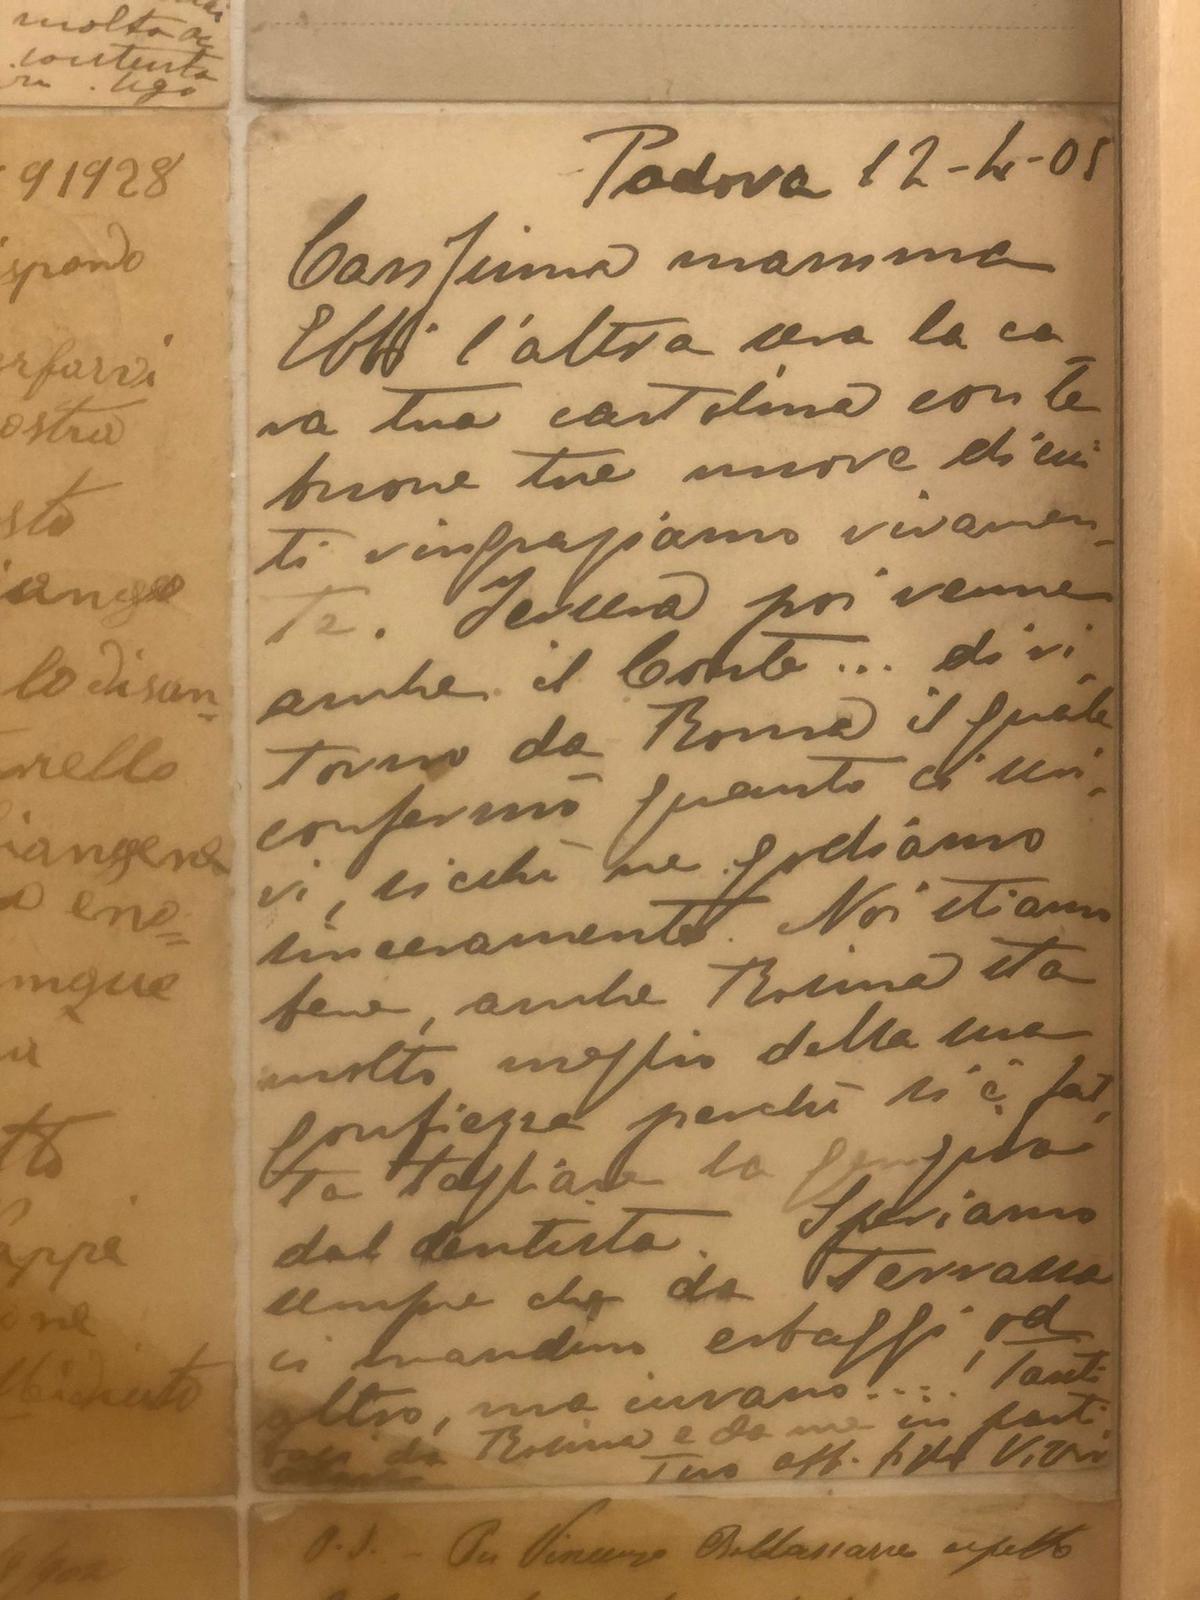 molto
contenta
Ugo
91928
ispondo
erfarvi
ostra
sto
lo disan-
nello
iangere
mque
tto
one
Padova 12-4-05
Carissima mamma
Ebbi l'altra sera la ca
ra tua cartolina con le
buone tue nuove di cui
ti ringraziamo vivamen-
te. Iersera poi venne
anche il Conte... di ri
torno da Roma il quale
confermò quanto ci scri-
vi, sicchè ne godiamo
sinceramente. Noi stiamo
bene, anche Rosina sta
molto meglio della sua
gonfiezza perchè si è fat
ta tagliare la gengiva
dal dentista. Speriamo
sempre che da Terrassa
ci mandino erbaggi od
altro, ma invano....! Tanti
baci da Rosina e da me in parti
Tuo aff. figlio
P.S. - Per Vincenzo Baldassare aspetto